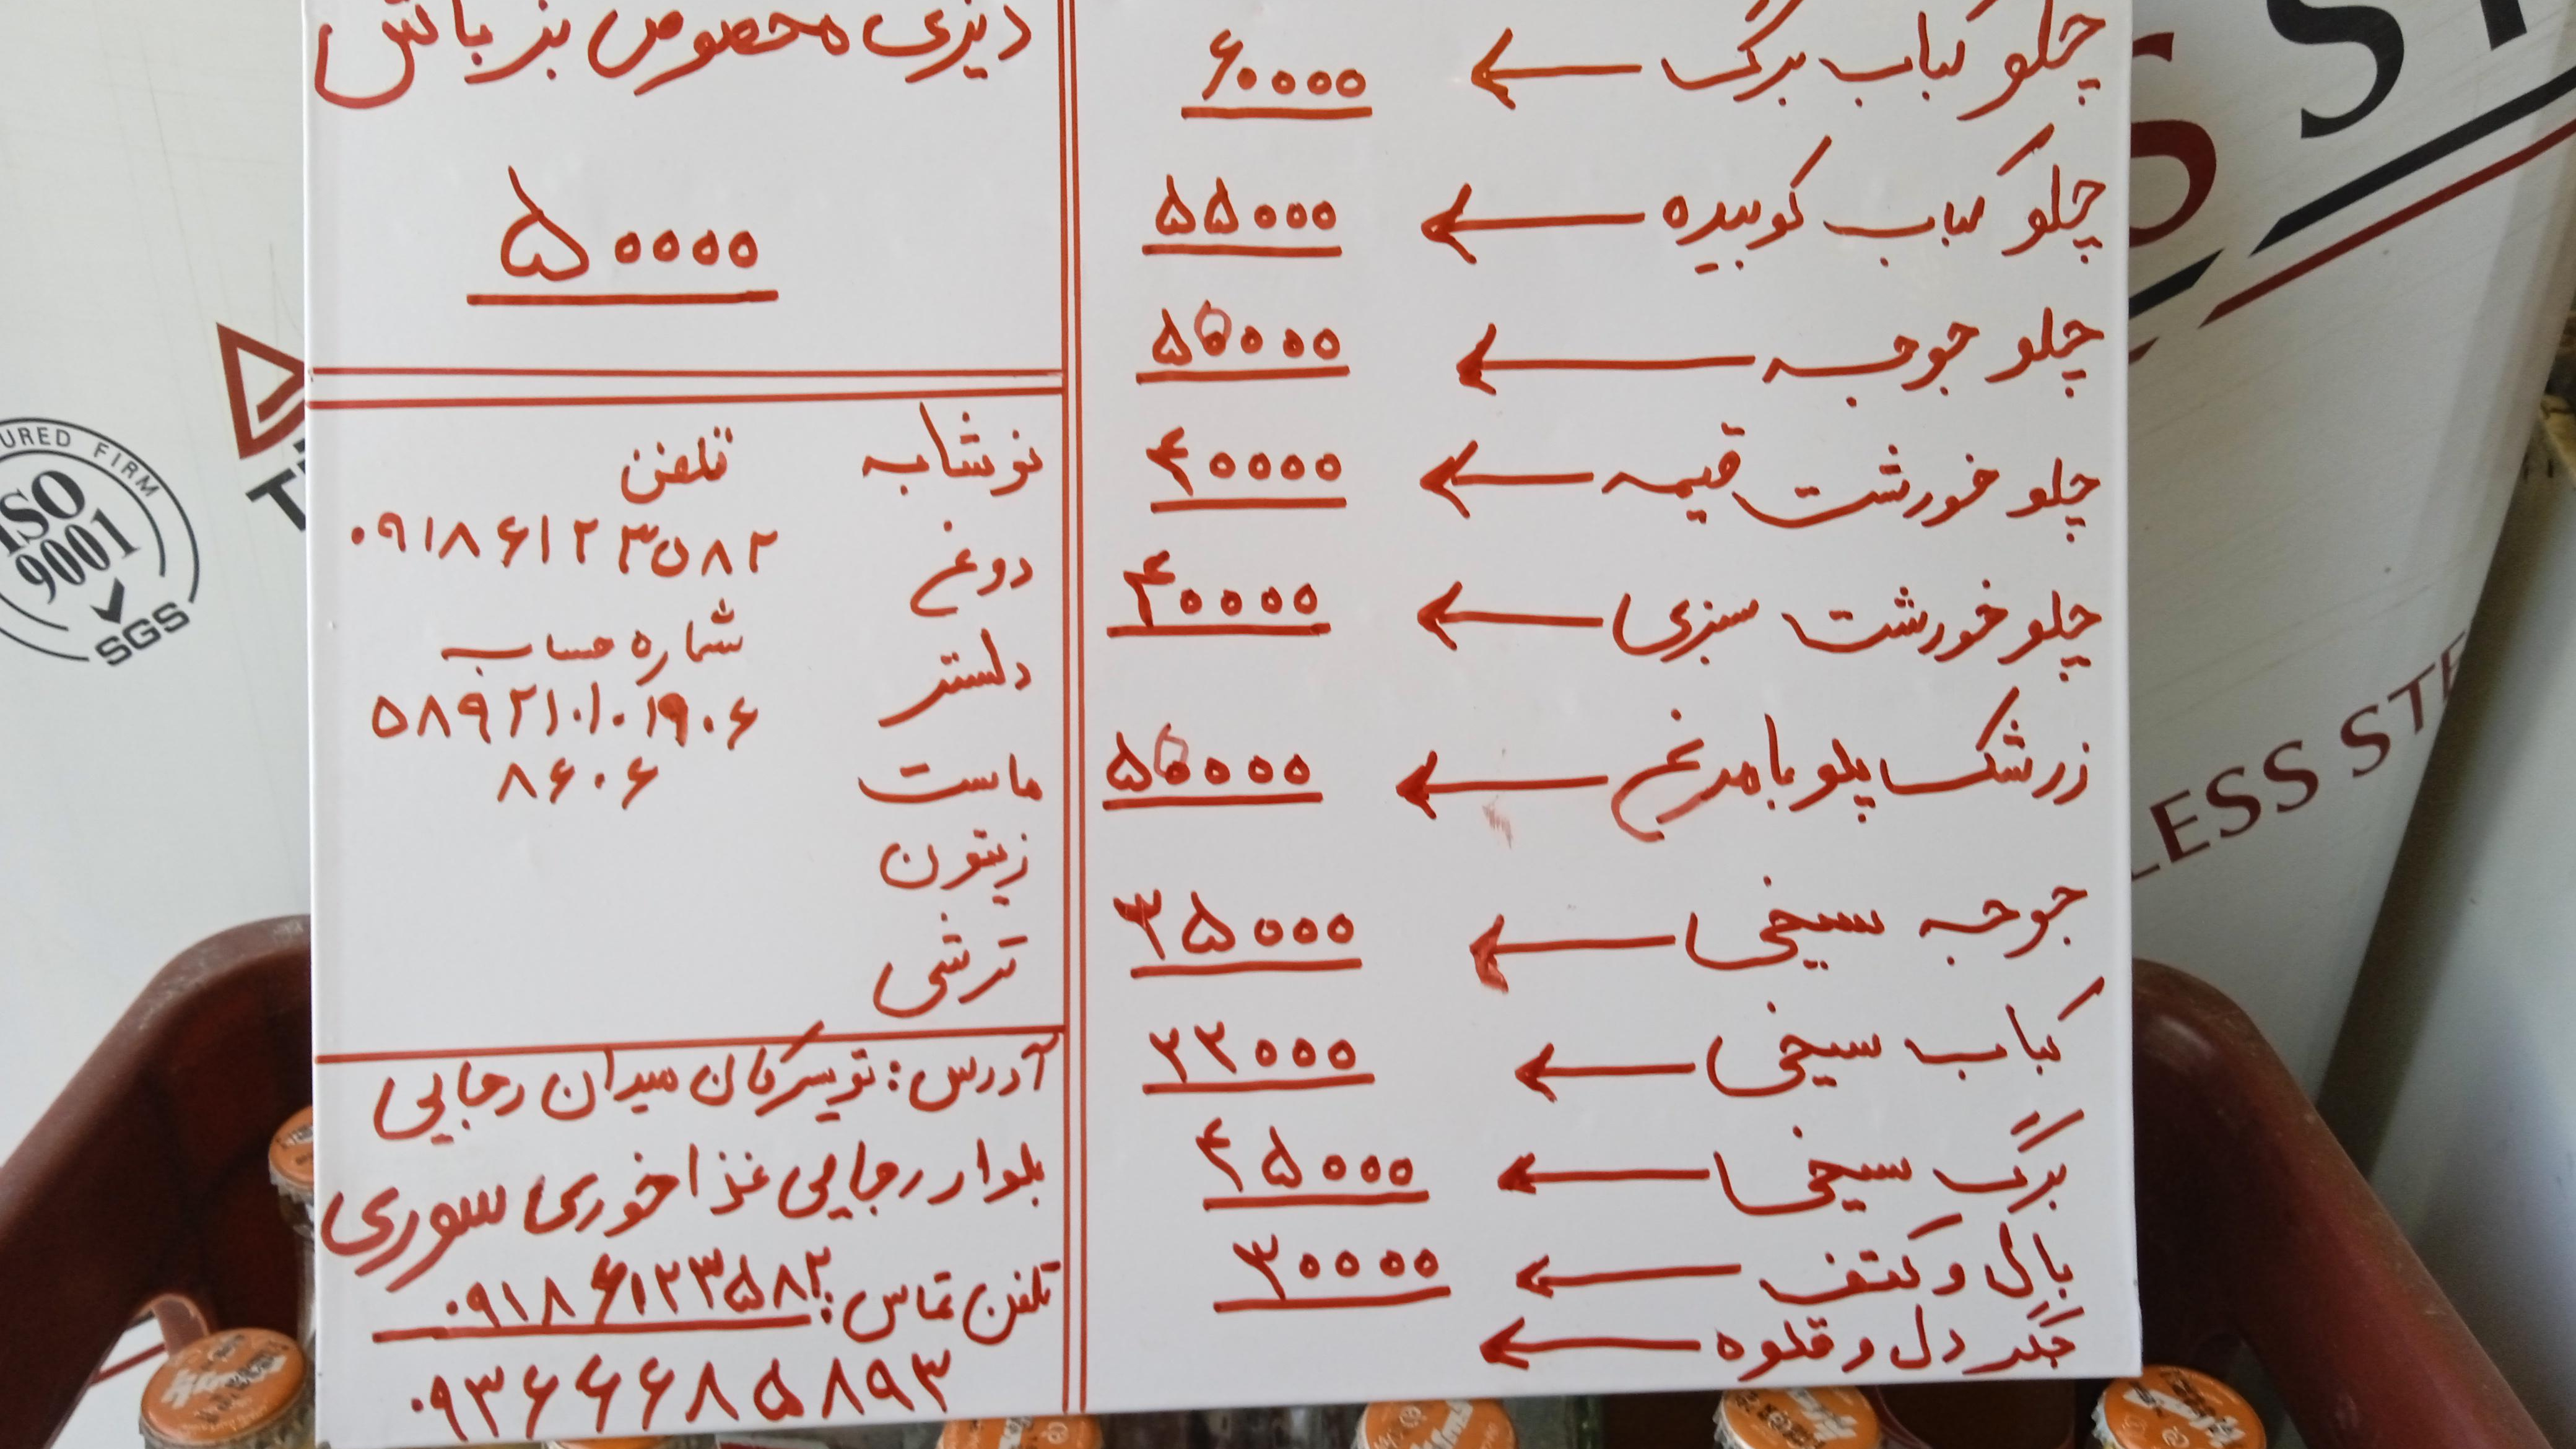 چلو کباب برگ ← ۶۰۰۰۰
چلو کباب کوبیده ← ۵۵۰۰۰
چلو جوجه ← ۵۰۰۰۰
چلو خورشت قیمه ← ۴۰۰۰۰
چلو خورشت سبزی ← ۴۰۰۰۰
زرشک پلو با مرغ ← ۵۰۰۰۰
جوجه سیخی ← ۳۵۰۰۰
کباب سیخی ← ۲۲۰۰۰
برگ سیخی ← ۴۵۰۰۰
بال و کتف ← ۳۰۰۰۰
جگر دل و قلوه ←
دیزی مخصوص بزباش
۵۰۰۰۰
نوشابه
دوغ
دلستر
ماست
زیتون
ترشی
تلفن
۰۹۱۸۶۱۲۳۵۸۲
شماره حساب
۵۸۹۲۱۰۱۰۱۹۰۶
۸۶۰۶
آدرس: تویسرکان میدان رجایی
بلوار رجایی غذاخوری سوری
تلفن تماس: ۰۹۱۸۶۱۲۳۵۸۲
۰۹۳۶۶۶۸۵۸۹۳
URED FIRM
ISO
9001
SGS
S ST
LESS STE